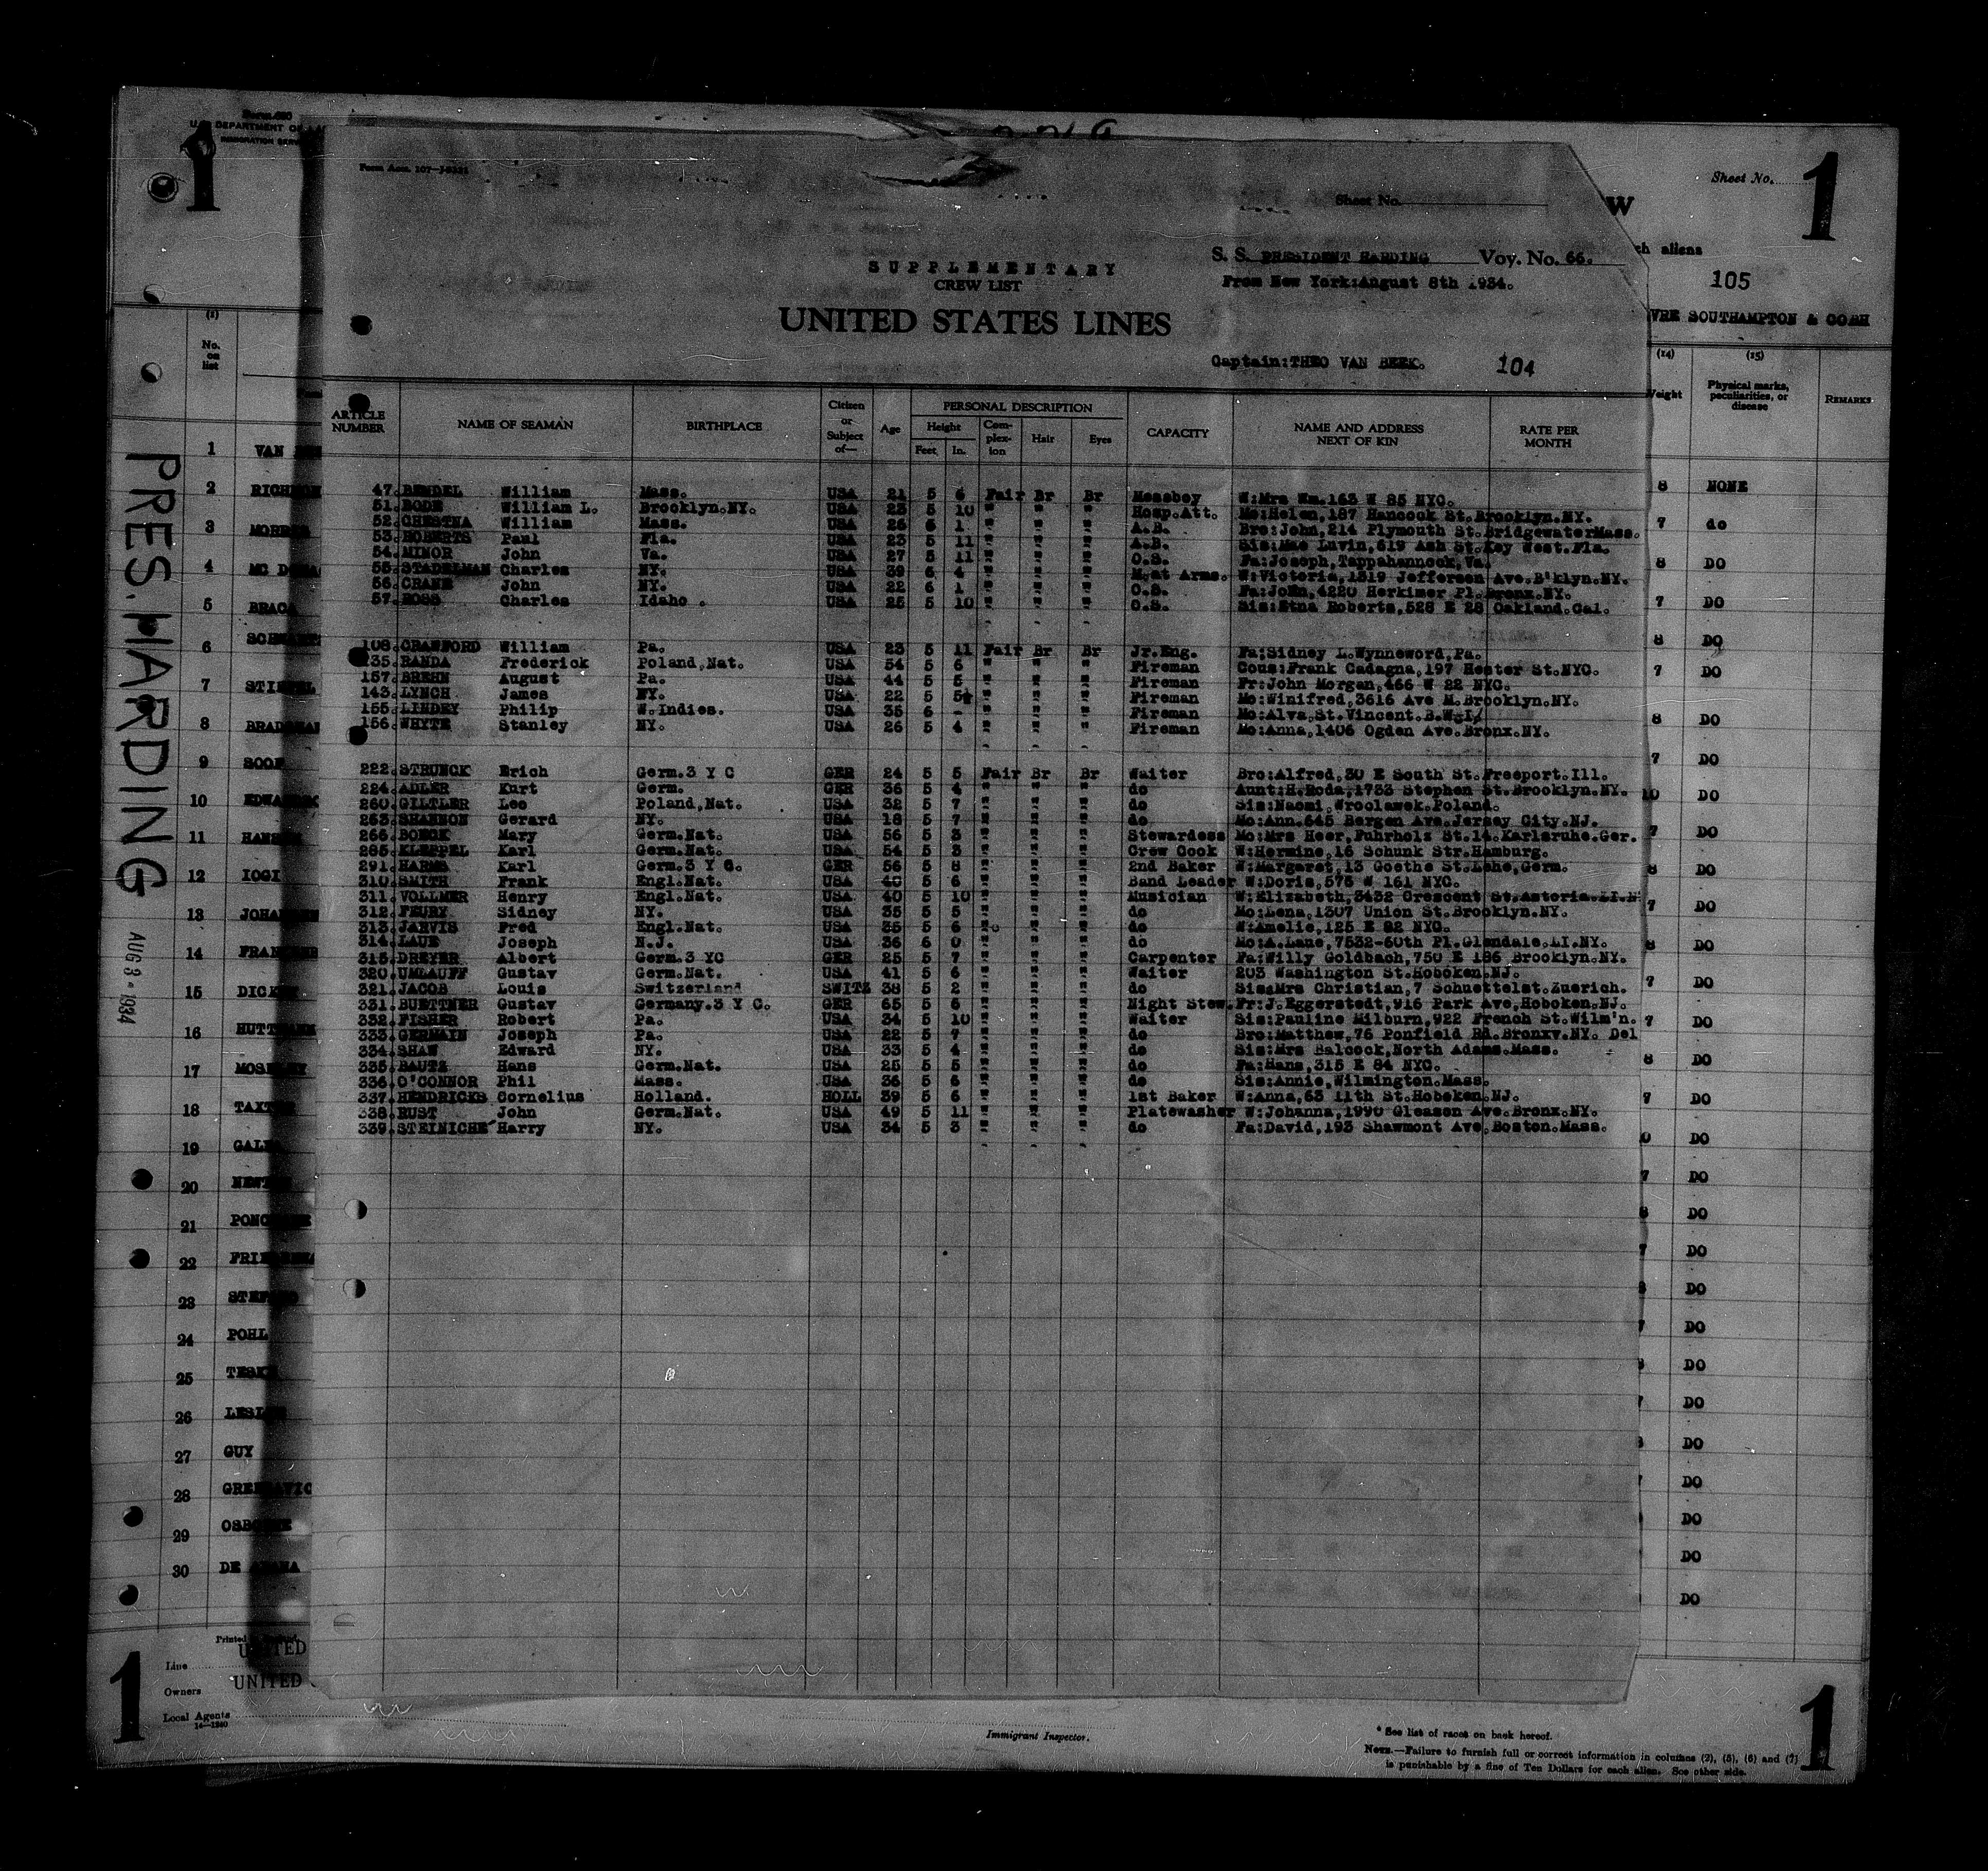 Form 680
U.S. DEPARTMENT OF
IMMIGRATION SERV
1
1
Sheet No.
W
ch aliens
105
VRE SOUTHAMPTON & COBH
Form Acm. 107
Sheet No.
S. S. PRESIDENT HARDING Voy. No. 66.
SUPPLEMENTARY
CREW LIST
From New York:August 8th 1934.
UNITED STATES LINES
Captain:THEO VAN BEEK. 104
(1) No. on list
(14) Weight
(15) Physical marks, peculiarities, or disease
REMARKS
ARTICLE NUMBER NAME OF SEAMAN BIRTHPLACE Citizen or Subject of— Age PERSONAL DESCRIPTION Height Feet In. Complexion Hair Eyes CAPACITY NAME AND ADDRESS NEXT OF KIN RATE PER MONTH
47. BENDEL William Mass. USA 21 5 6 Fair Br Br Messboy W:Mrs Wm.163 W 85 NYC.
51. BODE William L. Brooklyn.NY. USA 23 5 10 " " " Hosp.Att. Mo:Helen,187 Hancock St.Brooklyn.NY.
52. CHESTNA William Mass. USA 26 6 1 " " " A.B. Bro:John,214 Plymouth St.BridgewaterMass.
53. ROBERTS Paul Fla. USA 23 5 11 " " " A.B. Sis:Mae Luvin,619 Ash St.Key West.Fla.
54. MINOR John Va. USA 27 5 11 " " " O.S. Fa:Joseph,Tappahannock,Va.
55. STADELMAN Charles NY. USA 39 6 4 " " " M.at Arms. W:Victoria,1319 Jefferson Ave.B'klyn.NY.
56. CRANE John NY. USA 22 6 1 " " " O.S. Fa:John,4220 Herkimer Pl.Bronx.NY.
57. ROSS Charles Idaho . USA 25 5 10 " " " O.S. Sis:Etna Roberts,528 E 28 Oakland.Cal.
108. CRAWFORD William Pa. USA 23 5 11 Fair Br Br Jr.Eng. Fa:Sidney L.Wynneword,Pa.
135. RANDA Frederick Poland,Nat. USA 54 5 6 " " " Fireman Cous:Frank Cadagna,197 Hester St.NYC.
157. BREHN August Pa. USA 44 5 5 " " " Fireman Fr:John Morgan,466 W 22 NYC.
143. LYNCH James NY. USA 22 5 5½ " " " Fireman Mo:Winifred,3616 Ave M.Brooklyn.NY.
155. LINDEY Philip W.Indies. USA 35 6 - " " " Fireman Mo:Alva.St.Vincent.B.W.I.
156. WHYTE Stanley NY. USA 26 5 4 " " " Fireman Mo:Anna,1406 Ogden Ave.Bronx.NY.
222. STRUNCK Erich Germ.3 Y C GER 24 5 5 Fair Br Br Waiter Bro:Alfred,30 E South St.Freeport.Ill.
224. ADLER Kurt Germ. GER 36 5 4 " " " do Aunt:H.Roda,1753 Stephen St.Brooklyn.NY.
260. GILTLER Leo Poland,Nat. USA 32 5 7 " " " do Sis:Naomi,Wroclawek.Poland.
263. SHANNON Gerard NY. USA 18 5 7 " " " do Mo:Ann.645 Bergen Ave.Jersey City.NJ.
266. BONCK Mary Germ.Nat. USA 56 5 3 " " " Stewardess Mo:Mrs Heer,Fuhrholz St.14.Karlsruhe.Ger.
285. KLEPPEL Karl Germ.Nat. USA 54 5 3 " " " Crew Cook W:Hermine,16 Schunk Str.Hamburg.
291. HARMS Karl Germ.3 Y C. GER 56 5 8 " " " 2nd Baker W:Margaret,13 Goethe St.Lehe,Germ.
310. SMITH Frank Engl.Nat. USA 40 5 6 " " " Band Leader W:Doris,575 W 161 NYC.
311. VOLLMER Henry Engl.Nat. USA 40 5 10 " " " Musician W:Elizabeth,3432 Crescent St.Astoria.LI.N
312. FEURY Sidney NY. USA 35 5 5 " " " do Mo:Lena,1307 Union St.Brooklyn.NY.
313. JARVIS Fred Engl.Nat. USA 35 5 6 " " " do W:Amelie,125 E 82 NYC.
314. LAUE Joseph N.J. USA 36 6 0 " " " do Mo:A.Lane,7532-60th Pl.Glendale.LI.NY.
315. DREYER Albert Germ.3 YC GER 25 5 7 " " " Carpenter Fa:Willy Goldbach,750 E 186 Brooklyn.NY.
320. UMLAUFF Gustav Germ.Nat. USA 41 5 6 " " " Waiter 203 Washington St.Hoboken.NJ.
321. JACOB Louis Switzerland SWITZ 38 5 2 " " " do Sis:Mrs Christian,7 Schuettelst.Zuerich.
331. BUETTNER Gustav Germany.3 Y C. GER 65 5 6 " " " Night Stew. Fr:J.Eggerstedt,916 Park Ave,Hoboken.NJ.
332. FISHER Robert Pa. USA 34 5 10 " " " Waiter Sis:Pauline Milburn,922 French St.Wilm'n.
333. GERMAYN Joseph Pa. USA 22 5 7 " " " do Bro:Matthew,76 Ponfield Rd.Bronxv.NY. Del
334. SHAW Edward NY. USA 33 5 4 " " " do Sis:Mrs Balcock,North Adams.Mass.
335. BAUTZ Hans Germ.Nat. USA 25 5 5 " " " do Fa:Hans,315 E 84 NYC.
336. O'CONNOR Phil Mass. USA 36 5 6 " " " do Sis:Annie,Wilmington.Mass.
337. HENDRICKS Cornelius Holland. HOLL 39 5 6 " " " 1st Baker W:Anna,63 11th St.Hoboken.NJ.
338. RUST John Germ.Nat. USA 49 5 11 " " " Platewasher W:Johanna,1990 Gleason Ave.Bronx.NY.
339. STEINICHE Harry NY. USA 34 5 3 " " " do Fa:David,193 Shawmont Ave.Boston.Mass.
PRES. HARDING
AUG 8 - 1934
1 VAN
2 RICH
3 MORRIS
4 MC D
5 BRACA
6 SCHWARTZ
7 STI
8 BRAD
9 SOOF
10 EDWA
11 HANSEN
12 IOGI
13 JOHA
14 FRAN
15 DICK
16 HUTT
17 MOS
18 TAXT
19 GAL
20 NEW
21 PON
22 FRI
23 STEF
24 POHL
25 TESK
26 LESL
27 GUY
28 GRE
29 OSBO
30 DE
8 NONE
7 do
8 DO
7 DO
8 DO
7 DO
8 DO
7 DO
10 DO
7 DO
8 DO
7 DO
8 DO
7 DO
7 DO
8 DO
7 DO
0 DO
7 DO
8 DO
7 DO
DO
DO
DO
DO
DO
DO
DO
DO
DO
Printed
Line UNITED
Owners UNITED
Local Agents
14—1240
Immigrant Inspector.
* See list of races on back hereof.
NOTE.—Failure to furnish full or correct information in columns (2), (5), (6) and (7)
is punishable by a fine of Ten Dollars for each alien. See other side.
1
1